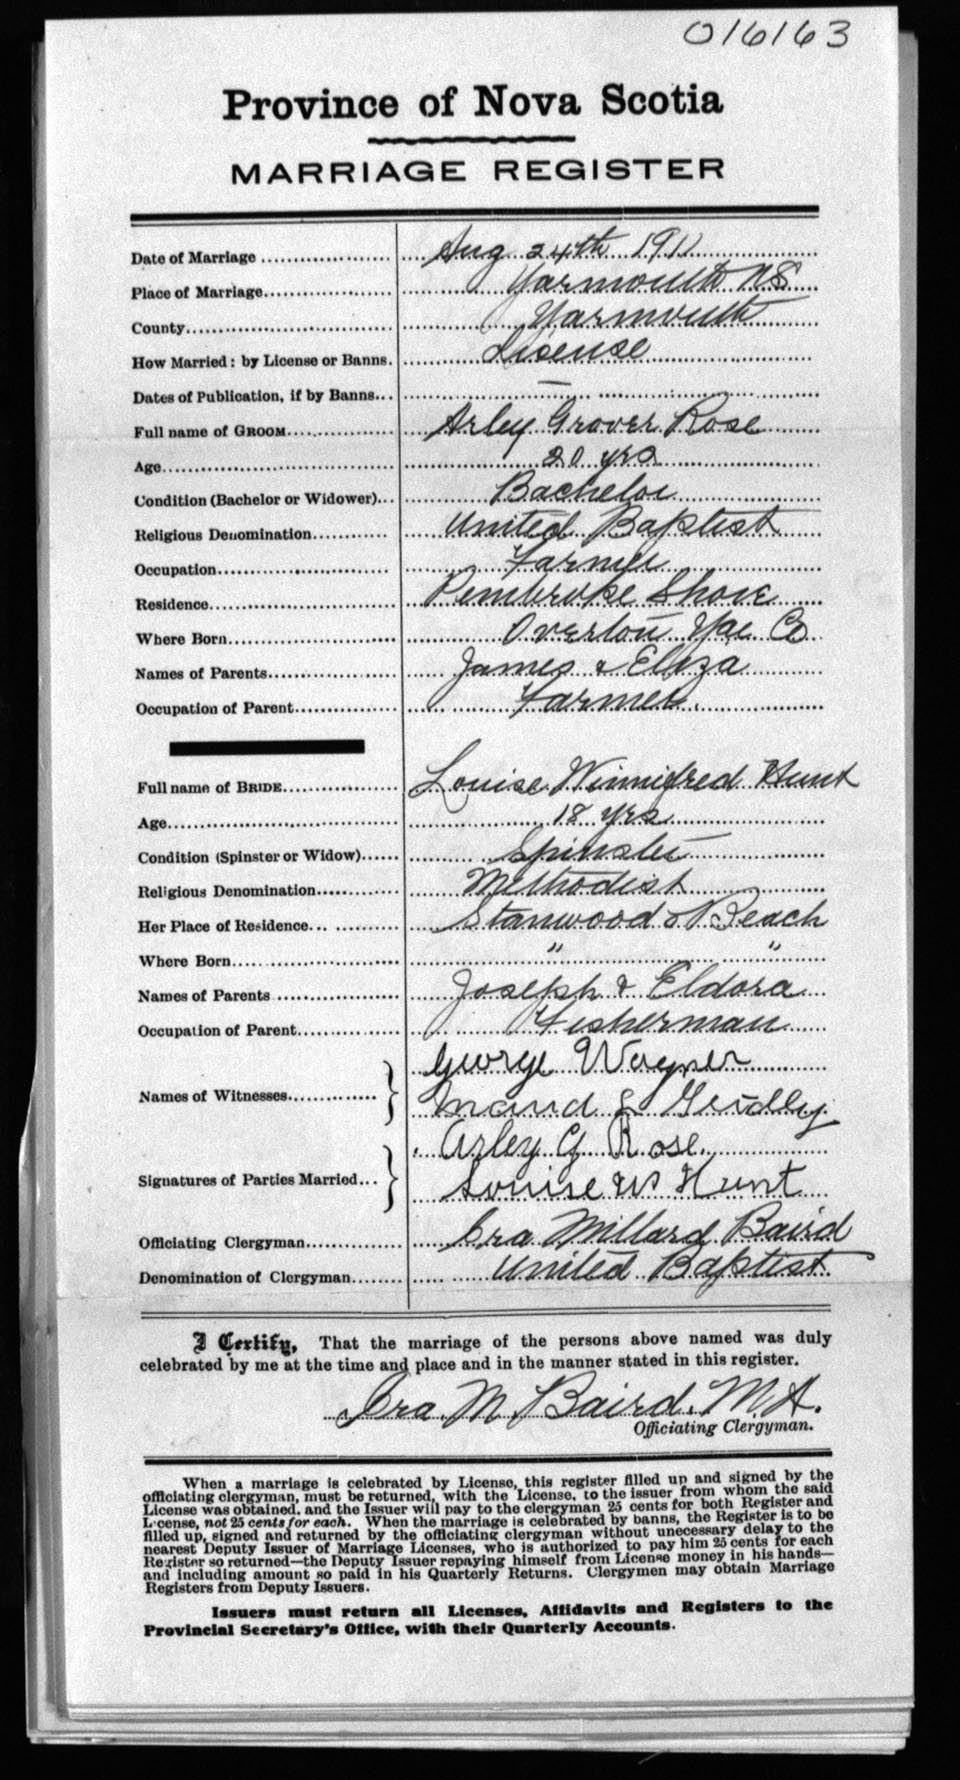 016163
Province of Nova Scotia
MARRIAGE REGISTER
Date of Marriage Aug 24th 1911
Place of Marriage Yarmouth NS
County Yarmouth
How Married: by License or Banns. Lisense
Dates of Publication, if by Banns —
Full name of GROOM Arley Grover Rose
Age 20 yrs
Condition (Bachelor or Widower) Bachelor
Religious Denomination United Baptist
Occupation Farmer
Residence Pembroke Shore
Where Born Overton Yar Co
Names of Parents James & Eliza
Occupation of Parent Farmer.
Full name of BRIDE Louise Winnifred Hunt
Age 18 yrs
Condition (Spinster or Widow) Spinster
Religious Denomination Methodist
Her Place of Residence Stanwood Beach
Where Born " "
Names of Parents Joseph & Eldora
Occupation of Parent Fisherman
George Wagner
Names of Witnesses
Maud L
Arley G Rose.
Signatures of Parties Married
Louise W Hunt
Officiating Clergyman Ira Millard Baird
Denomination of Clergyman United Baptist
I Certify, That the marriage of the persons above named was duly
celebrated by me at the time and place and in the manner stated in this register.
Ira M Baird. M.A.
Officiating Clergyman.
When a marriage is celebrated by License, this register filled up and signed by the
officiating clergyman, must be returned, with the License, to the issuer from whom the said
License was obtained, and the Issuer will pay to the clergyman 25 cents for both Register and
License, not 25 cents for each. When the marriage is celebrated by banns, the Register is to be
filled up, signed and returned by the officiating clergyman without unnecessary delay to the
nearest Deputy Issuer of Marriage Licenses, who is authorized to pay him 25 cents for each
Register so returned—the Deputy Issuer repaying himself from License money in his hands—
and including amount so paid in his Quarterly Returns. Clergymen may obtain Marriage
Registers from Deputy Issuers.
Issuers must return all Licenses, Affidavits and Registers to the
Provincial Secretary's Office, with their Quarterly Accounts.